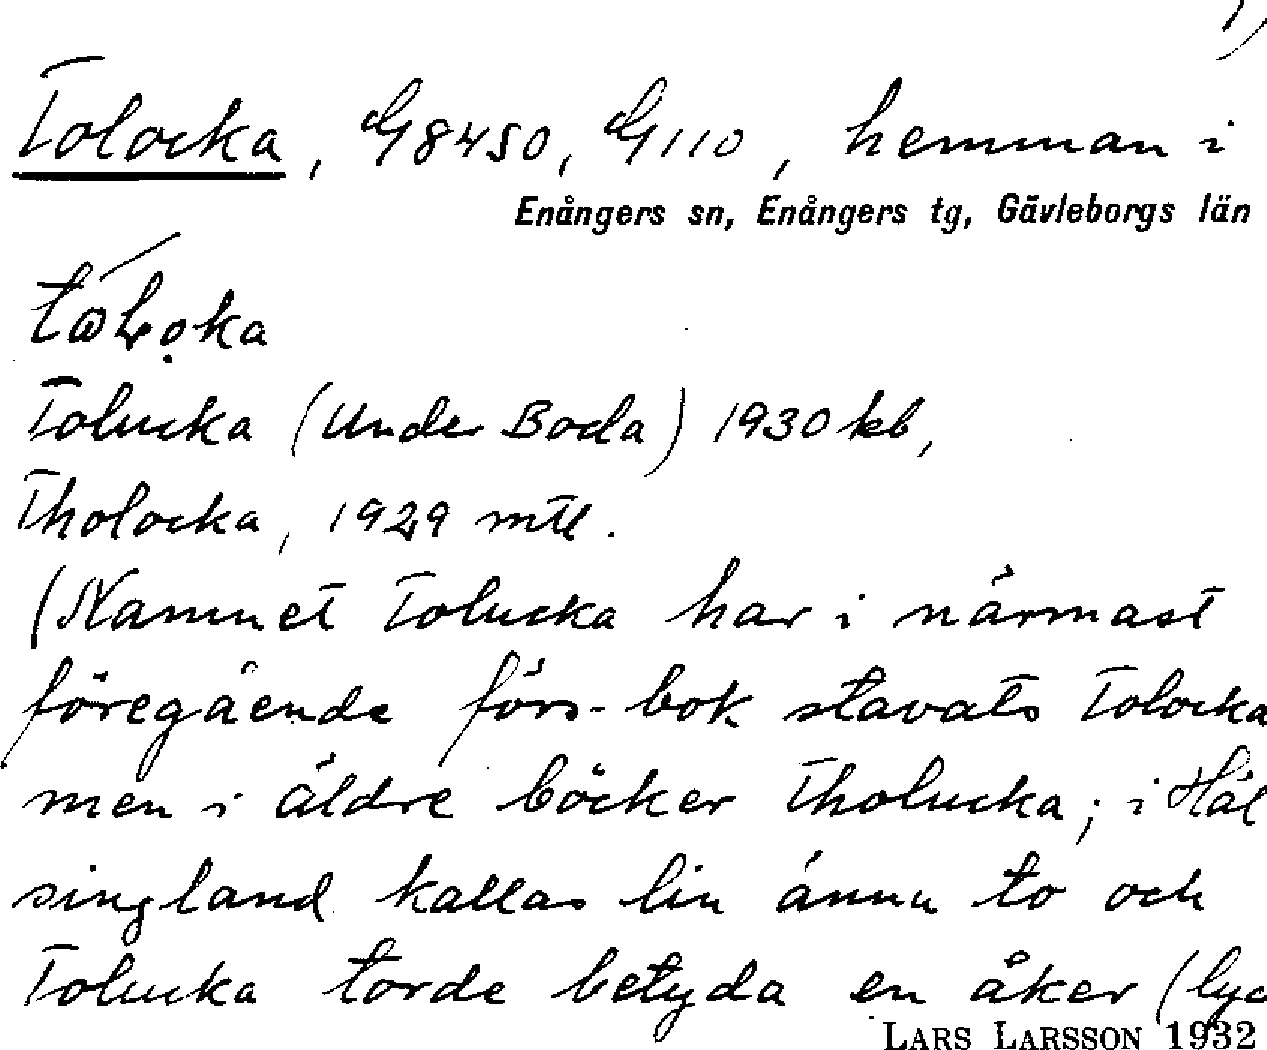 1)
Tolocka, G8450, G110, hemman i
Enångers sn, Enångers tg, Gävleborgs län
Tolucka (Under Boda) 1930 kb,
Tholocka, 1929 mtl.
(Namnet Tolucka har i närmast
föregående förs-bok stavats Tolocka
men i äldre böcker Tholucka; i Häl
singland kallas lin ännu to och
Tolucka torde betyda en åker (lyc
LARS LARSSON 1932